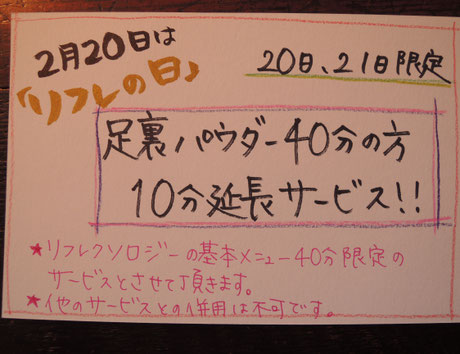 2月20日は
「リフレの日」
20日、21日限定
足裏パウダー40分の方
10分延長サービス!!
★リフレクソロジーの基本メニュー40分限定の
サービスとさせて頂きます。
★他のサービスとの併用は不可です。